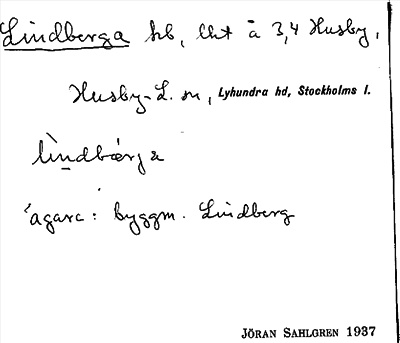 Lindberga hb, lht å 3,4 Husby,
Husby-L. sn, Lyhundra hd, Stockholms l.
lìndbærja
ägare: byggm. Lindberg
JÖRAN SAHLGREN 1937